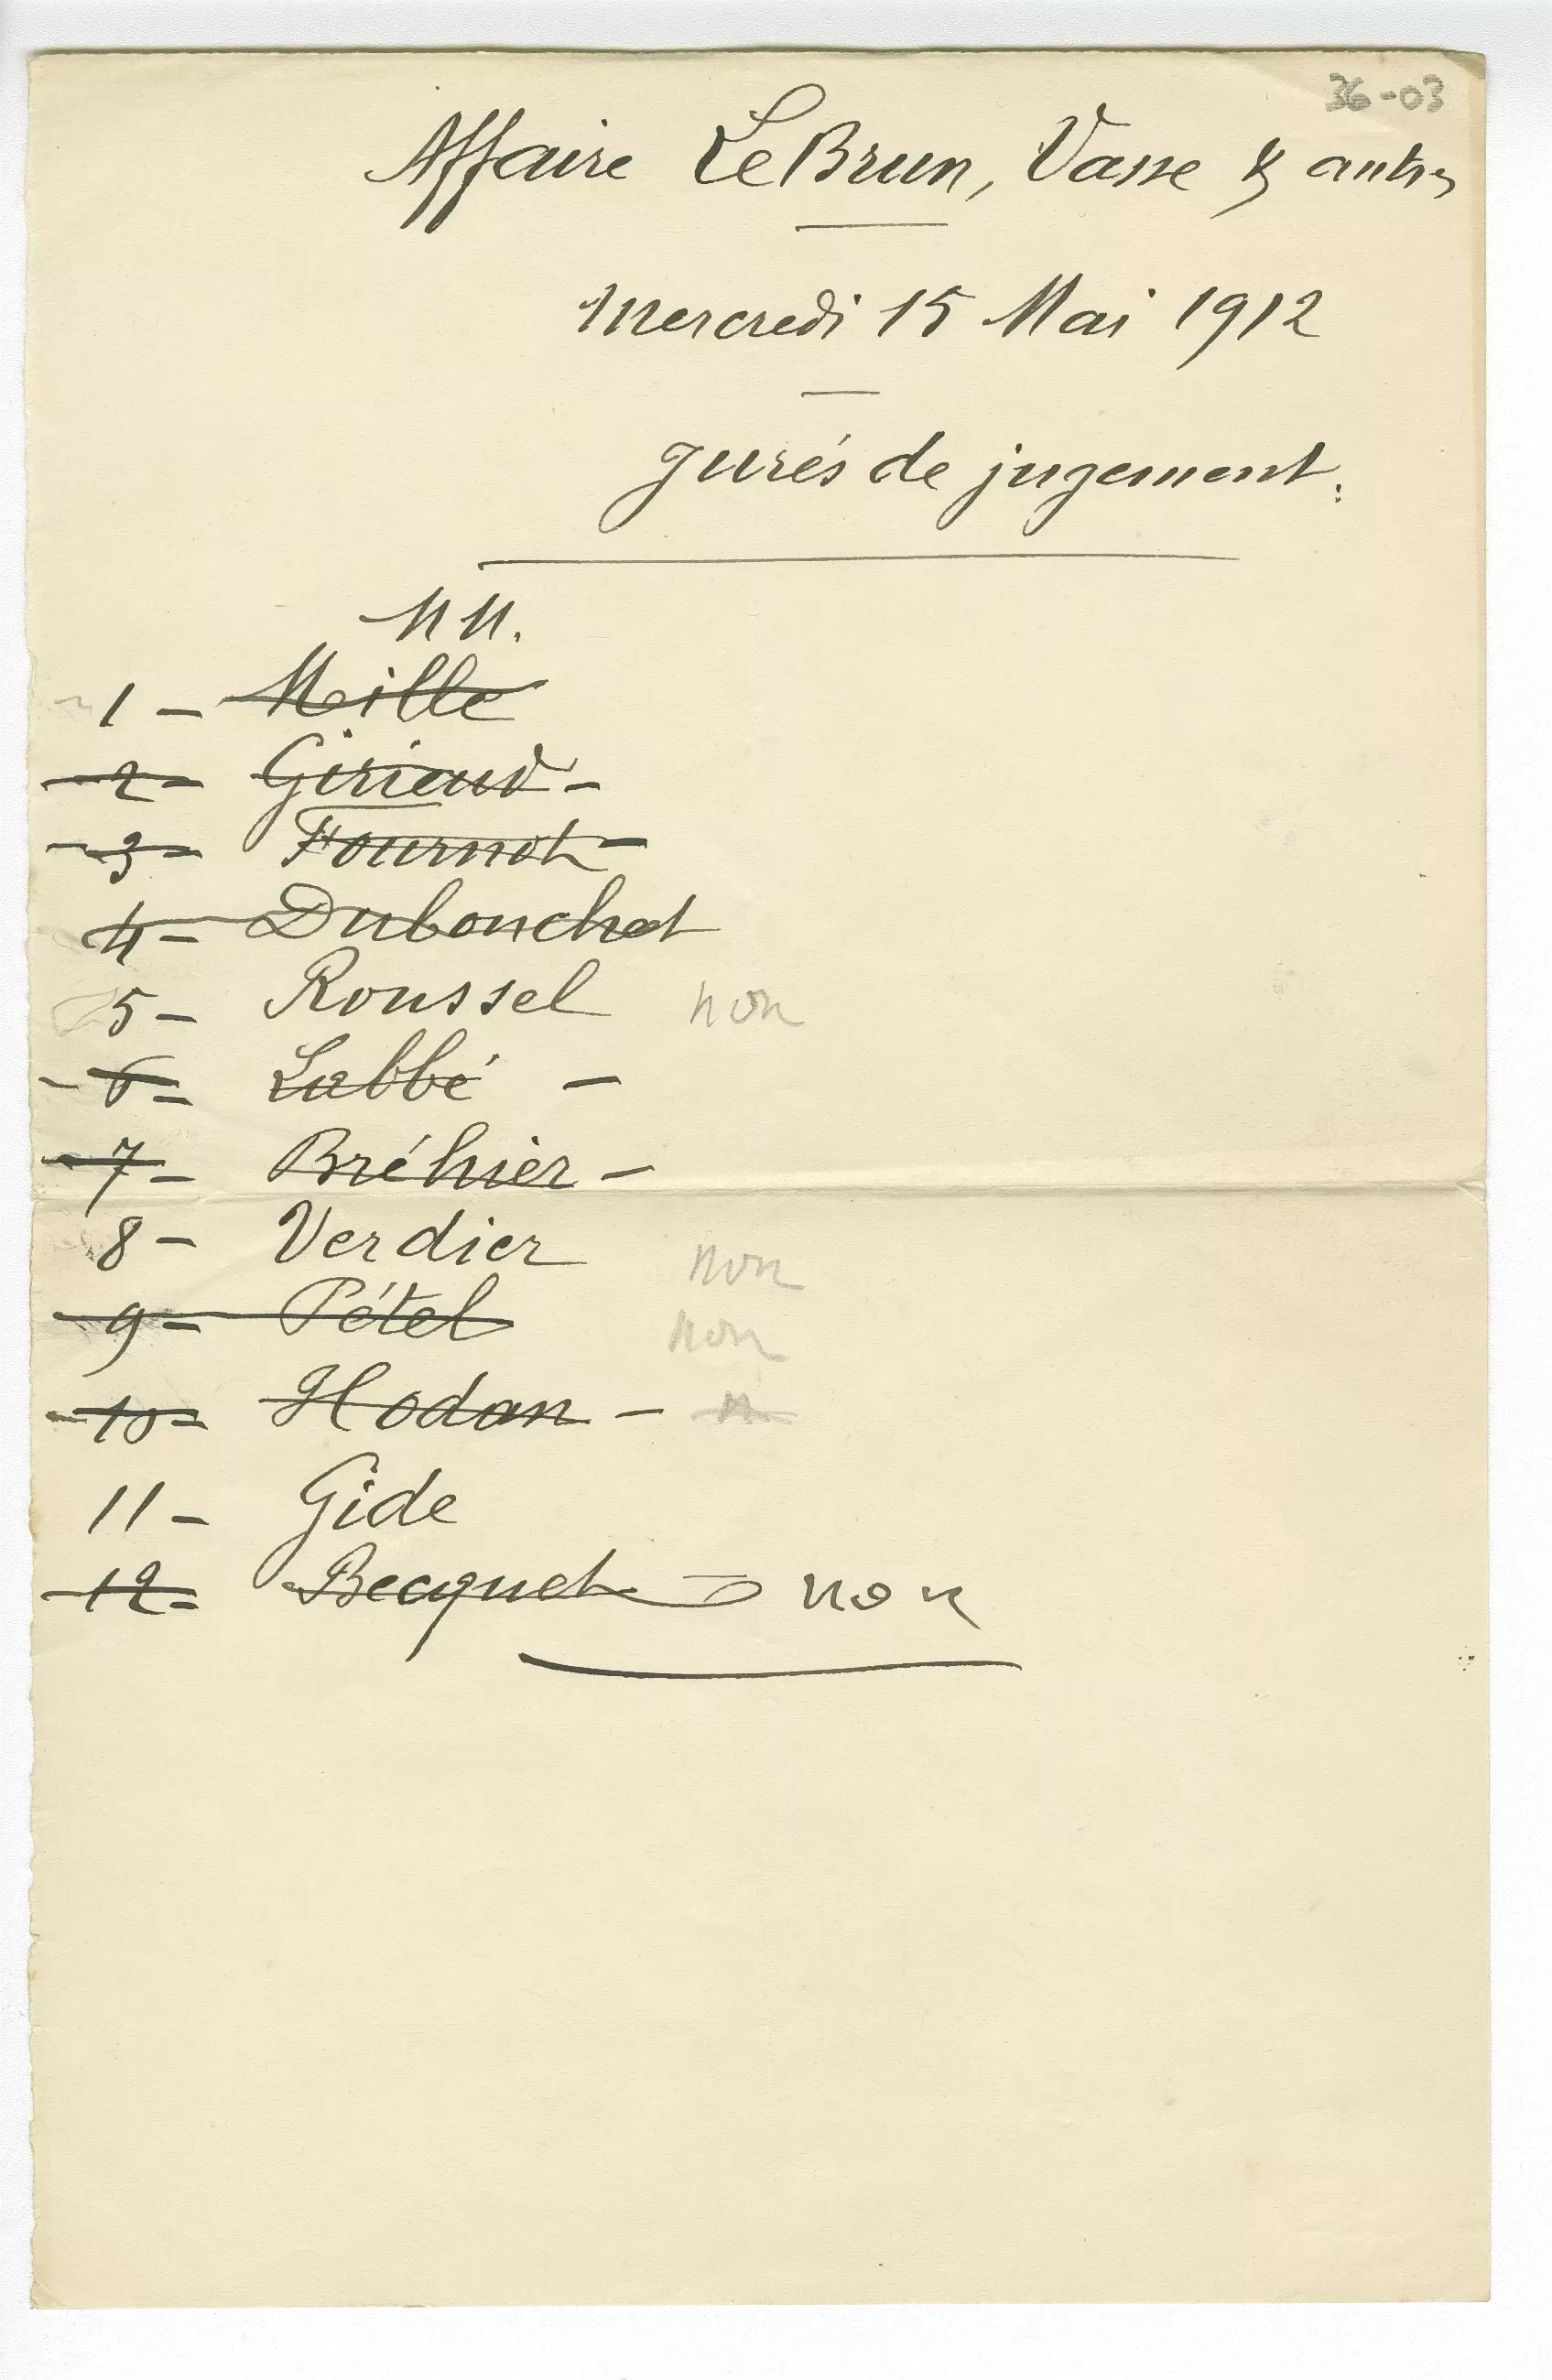 36-03
Affaire LeBrun, Vasse & autres
Mercredi 15 Mai 1912
Jurés de jugement.
MM.
1 - Mille
2 - Giriaud -
3 - Fournot -
4 - Dubouchet
5 - Roussel non
6 - Labbé -
7 - Bréhier -
8 - Verdier non
9 - Pétel non
10 - Hodan - n
11 - Gide
12 - Becquet non